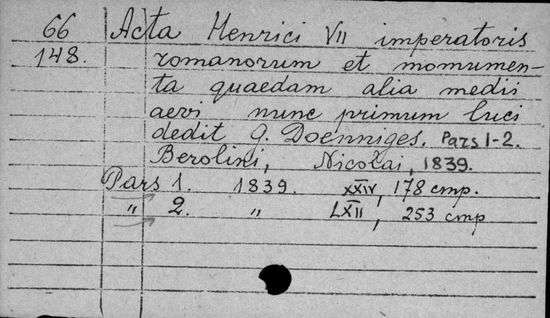 66 Acta Henrici VII imperatoris
148. romanorum et momumen-
ta quaedam alia medii
aevi nunc primum luci
dedit G. Doenniges. Pars 1-2.
Berolini, Nicolai, 1839.
Pars 1. 1839. XXIV, 178 cmp.
" 2. " LXII, 253 cmp